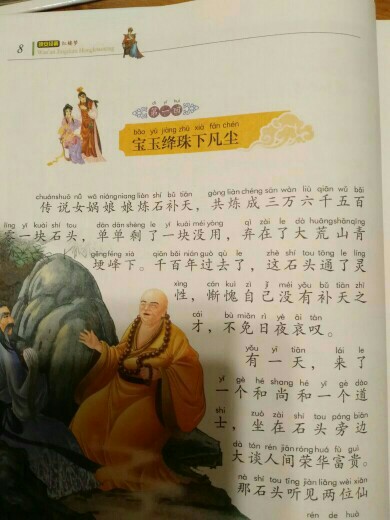 8
红楼梦
第一回
bǎo yù jiàng zhū xià fán chén
宝玉绛珠下凡尘
chuánshuō nǚ wā niángniang liàn shí bǔ tiān gòng liàn chéng sān wàn liù qiān wǔ bǎi
传说女娲娘娘炼石补天，共炼成三万六千五百
líng yī kuài shí tou dān dān shèng le yī kuài méi yòng qì zài le dà huāng shān qīng
零一块石头，单单剩了一块没用，弃在了大荒山青
gěng fēng xià qiān bǎi nián guò qù le zhè shí tou tōng le líng
埂峰下。千百年过去了，这石头通了灵
xìng cán kuì zì jǐ méi yǒu bǔ tiān zhī
性，惭愧自己没有补天之
cái bù miǎn rì yè āi tàn
才，不免日夜哀叹。
yǒu yī tiān lái le
有一天，来了
yī gè hé shang hé yī gè dào
一个和尚和一个道
shì zuò zài shí tou páng biān
士，坐在石头旁边
dà tán rén jiān róng huá fù guì
大谈人间荣华富贵。
nà shí tou tīng jiàn liǎng wèi xiān
那石头听见两位仙
rén de huà